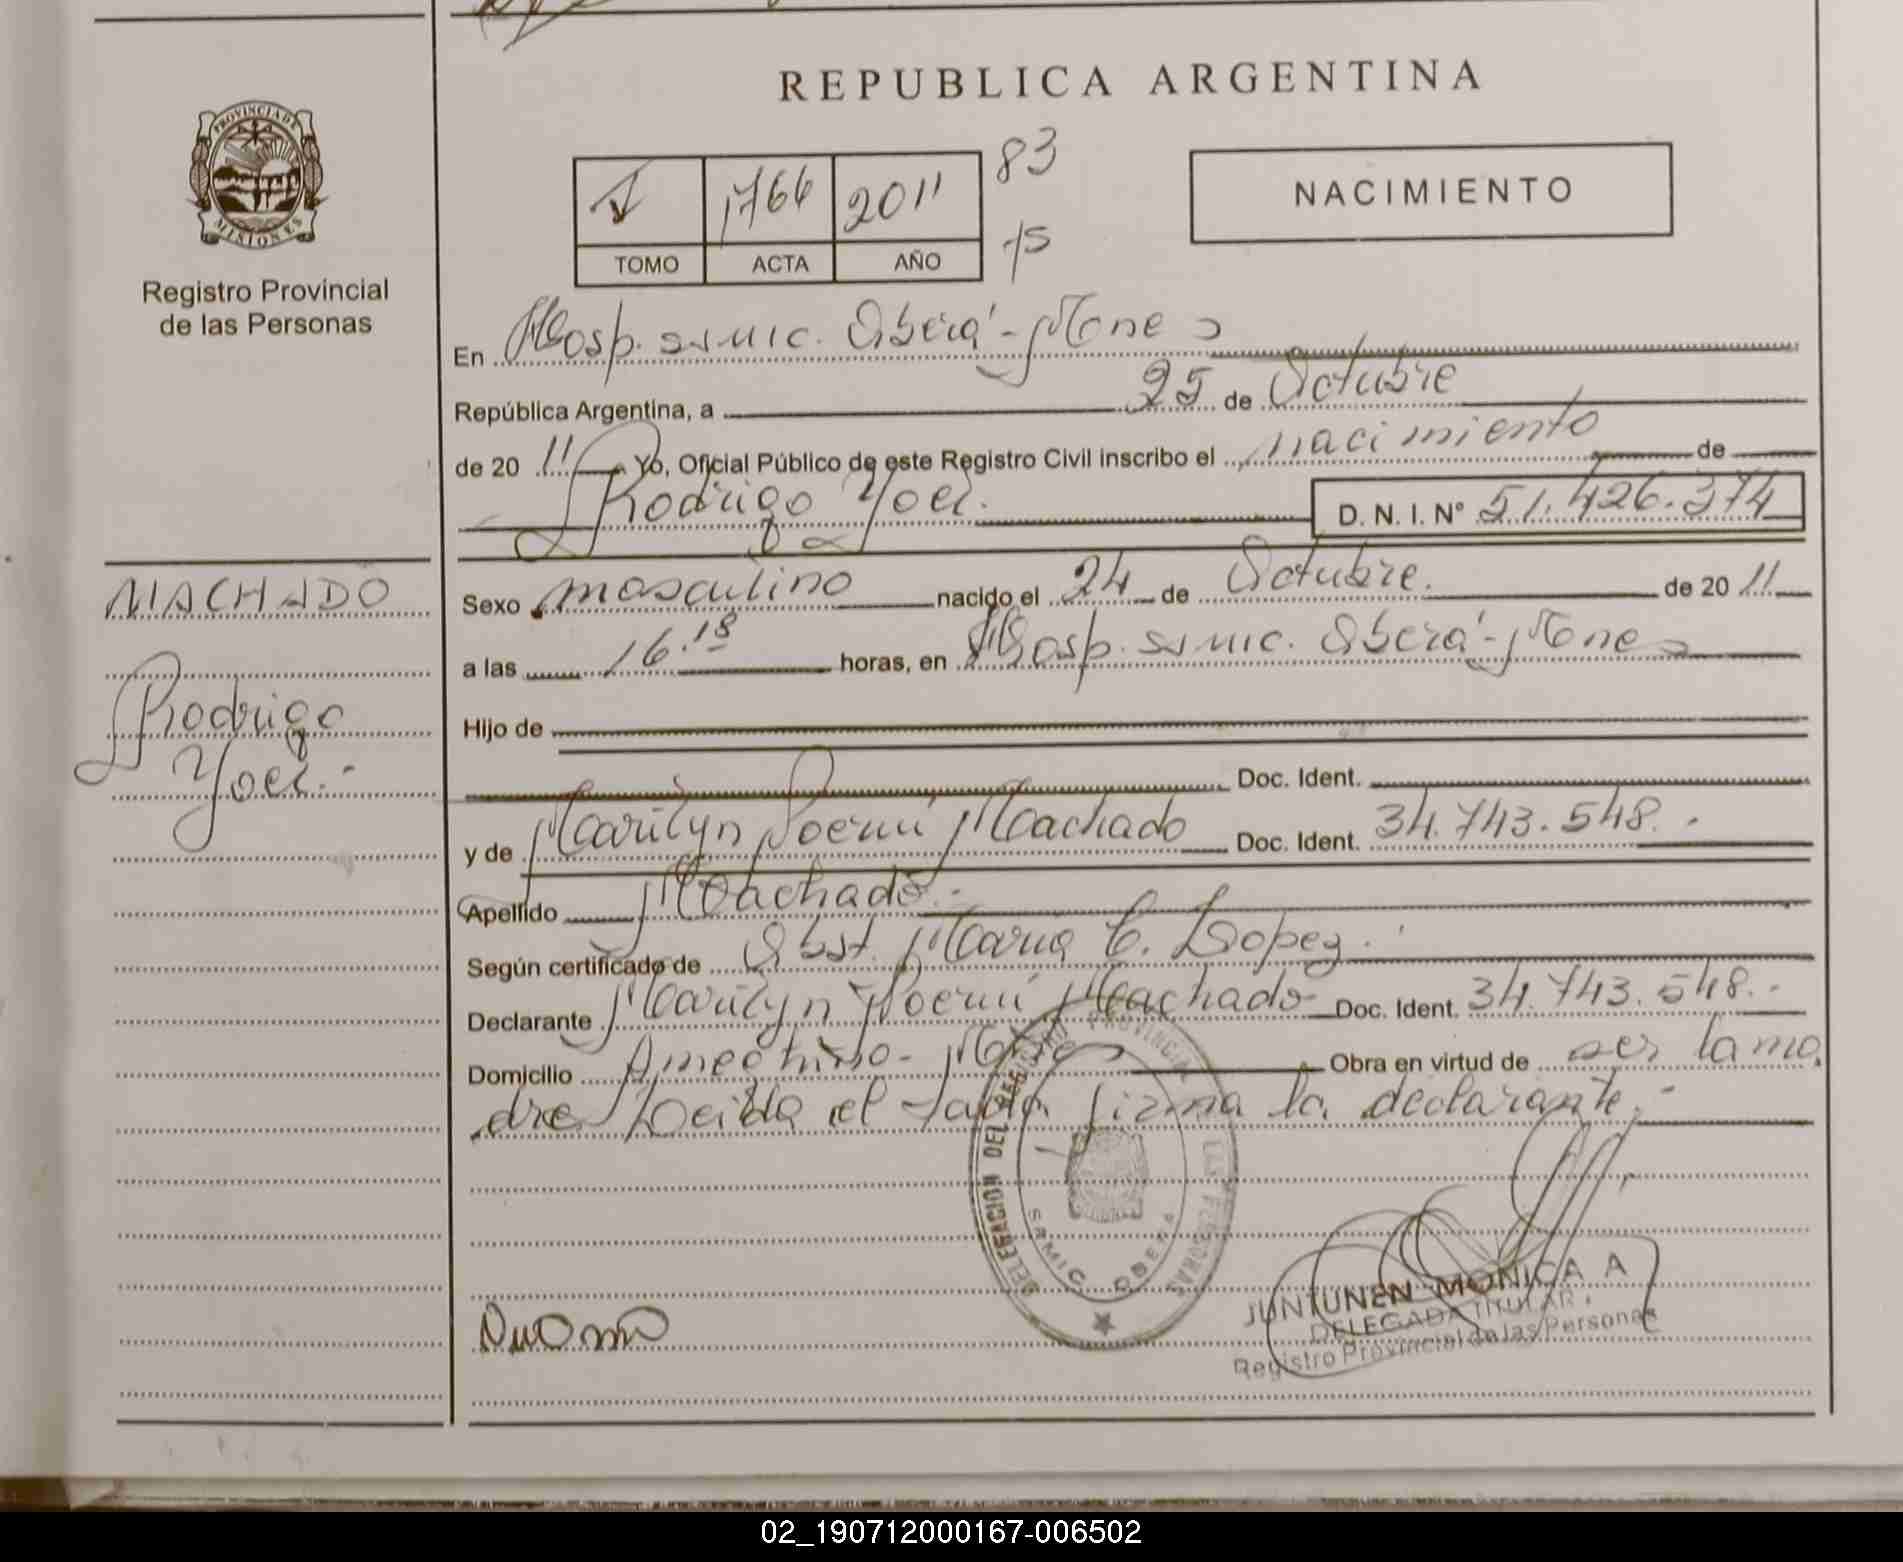 PROVINCIA DE
MISIONES
Registro Provincial
de las Personas
MACHADO
Rodrigo
Yoel.-
REPUBLICA ARGENTINA
1766 2011 83
TOMO ACTA AÑO 75
NACIMIENTO
En Hosp. samic. Oberá - Mnes
República Argentina, a 25 de Octubre
de 20 11 Yo, Oficial Público de este Registro Civil inscribo el nacimiento de
Rodrigo Yoel. D. N. I. N° 51.426.374
Sexo masculino nacido el 24 de Octubre. de 20 11
a las 16.18 horas, en Hosp. samic. Oberá - Mnes
Hijo de
Doc. Ident.
y de Marilyn Noemí Machado Doc. Ident. 34.743.548.-
Apellido Machado.-
Según certificado de Obst. Maria C. Lopez.
Declarante Marilyn Noemí Machado Doc. Ident. 34.743.548.-
Domicilio Ameghino - Obra en virtud de ser la ma
dre Leida el acta firma la declarante.-
DELEGACION DEL REGISTRO PROVINCIAL DE LAS PERSONAS
SAMIC OBERA
JUNTUNEN MONICA A
DELEGADA TITULAR
Registro Provincial de las Personas
02_190712000167-006502